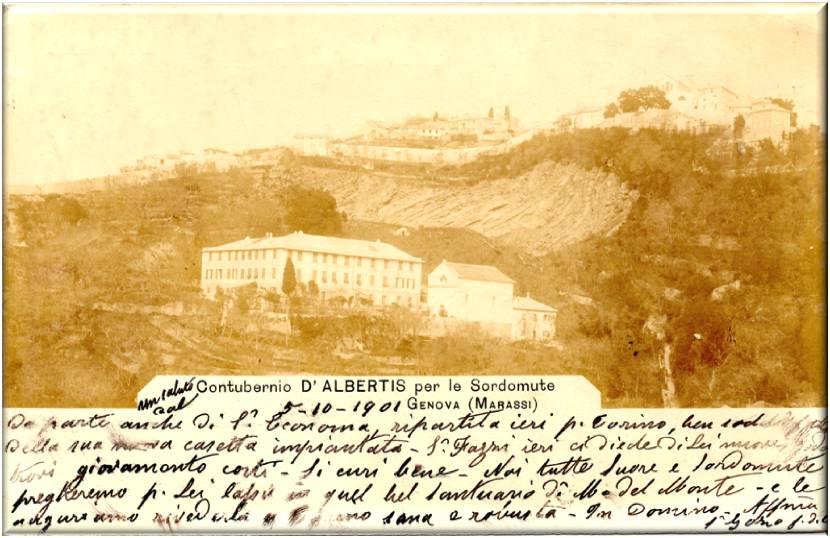 Contubernio D'ALBERTIS per le Sordomute
Un saluto
5-10-1901 GENOVA (MARASSI)
Da parte anche di S.r Economa, ripartita ieri p. Torino, ben
della sua casetta impiantata - S.r ieri ci diede di Lei nuove,
giovamento costì - Si curi bene - Noi tutte Suore e Sordomute
pregheremo p. Lei lassù in quel bel santuario di M. del Monte - e le
auguriamo rivederla a sana e robusta - In Domino - Affma